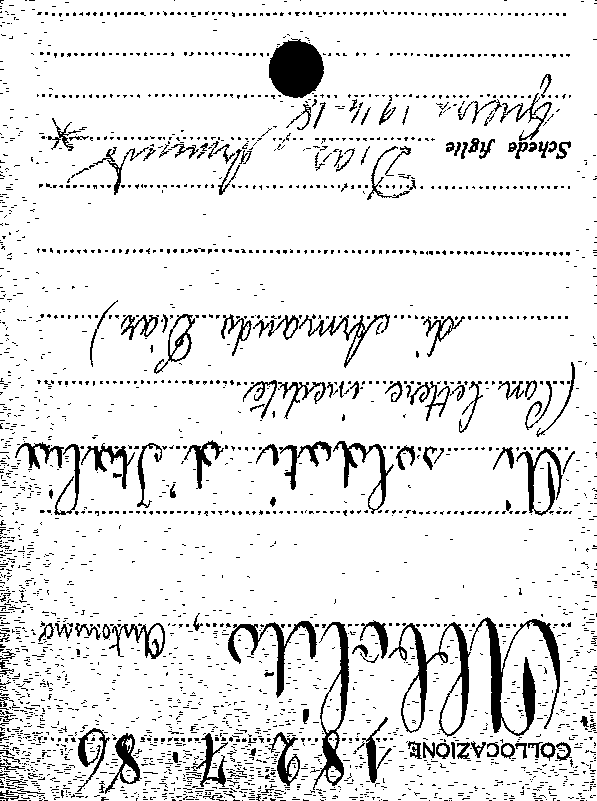 COLLOCAZIONE 182.7.86
Antonino
Ai soldati d'Italia
(Con lettere inedite
di Armando Diaz)
Schede figlie Diaz, Armando *
Guerra 1914-18